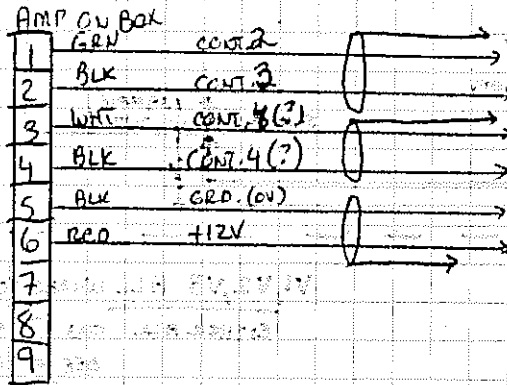 AMP ON BOX
1 GRN CONT. 2
2 BLK CONT. 3
3 WHT CONT. (?)
4 BLK CONT. 4 (?)
5 BLK GRD. (0V)
6 RED +12V
7
8
9